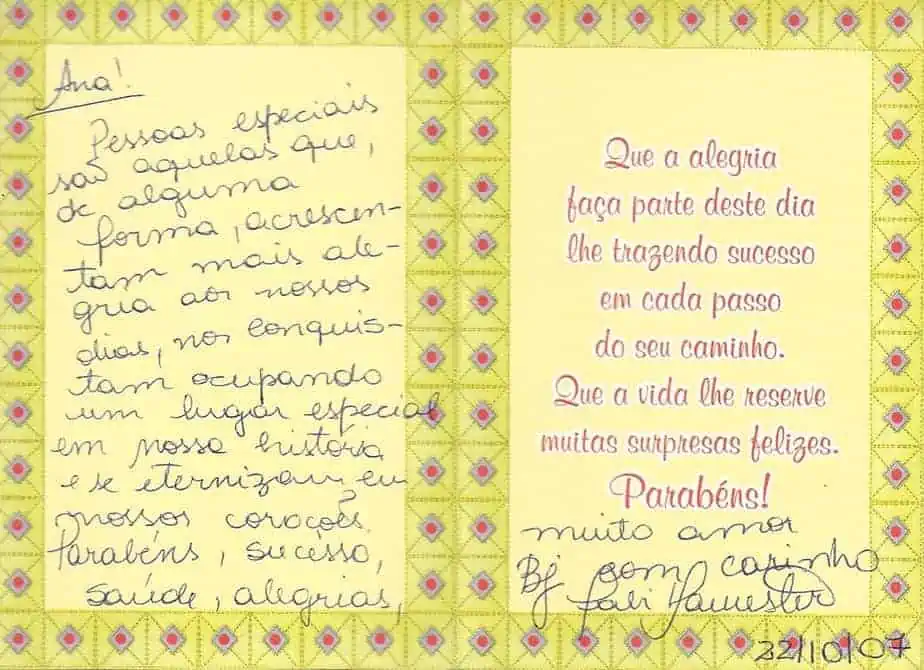 Ana!
Pessoas especiais
são aquelas que,
de alguma
forma, acrescen-
tam mais ale-
gria aos nossos
dias, nos conquis-
tam ocupando
um lugar especial
em nossa história
e se eternizam em
nossos corações.
Parabéns, sucesso,
saúde, alegrias,
Que a alegria
faça parte deste dia
lhe trazendo sucesso
em cada passo
do seu caminho.
Que a vida lhe reserve
muitas surpresas felizes.
Parabéns!
muito amor
Bj com carinho
22/10/07